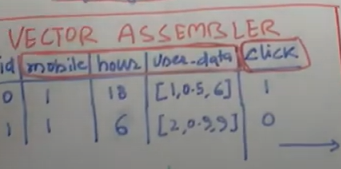 VECTOR ASSEMBLER
id mobile hour user-data click
0 1 18 [1,0.5,6] 1
1 1 6 [2,0.9,9] 0